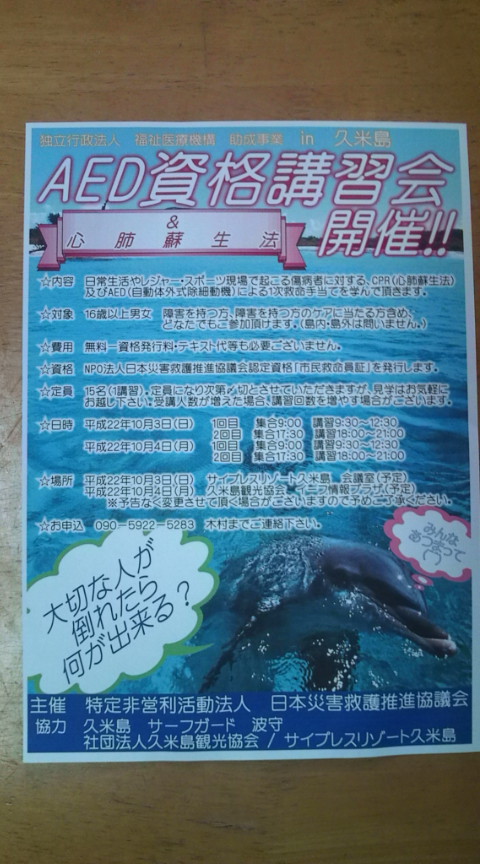 独立行政法人 福祉医療機構 助成事業 in 久米島
AED資格講習会
&
心肺蘇生法
開催!!
☆内容 日常生活やレジャー・スポーツ現場で起こる傷病者に対する、CPR(心肺蘇生法)
及びAED(自動体外式除細動機)による1次救命手当てを学んで頂きます。
☆対象 16歳以上男女 障害を持つ方、障害を持つ方のケアに当たる方含め、
どなたでもご参加頂けます。(島内・島外は問いません。)
☆費用 無料ー資格発行料・テキスト代等も必要ございません。
☆資格 NPO法人日本災害救護推進協議会認定資格「市民救命員証」を発行します。
☆定員 15名(1講習)。定員になり次第〆切とさせていただきますが、見学はお気軽に
お越し下さい。受講人数が増えた場合、講習回数を増やす場合がございます。
☆日時 平成22年10月3日(日) 1回目 集合9:00 講習9:30~12:30
2回目 集合17:30 講習18:00~21:00
平成22年10月4日(月) 1回目 集合9:00 講習9:30~12:30
2回目 集合17:30 講習18:00~21:00
☆場所 平成22年10月3日(日) サイプレスリゾート久米島 会議室(予定)
平成22年10月4日(月) 久米島観光協会 島ナビ情報プラザ(予定)
※予告なく変更させて頂く場合がございますので予めご了承ください。
☆お申込 090-5922-5283 木村までご連絡下さい。
みんな
あつまって
(^-^)
大切な人が
倒れたら
何が出来る?
主催 特定非営利活動法人 日本災害救護推進協議会
協力 久米島 サーフガード 波守
社団法人久米島観光協会 / サイプレスリゾート久米島